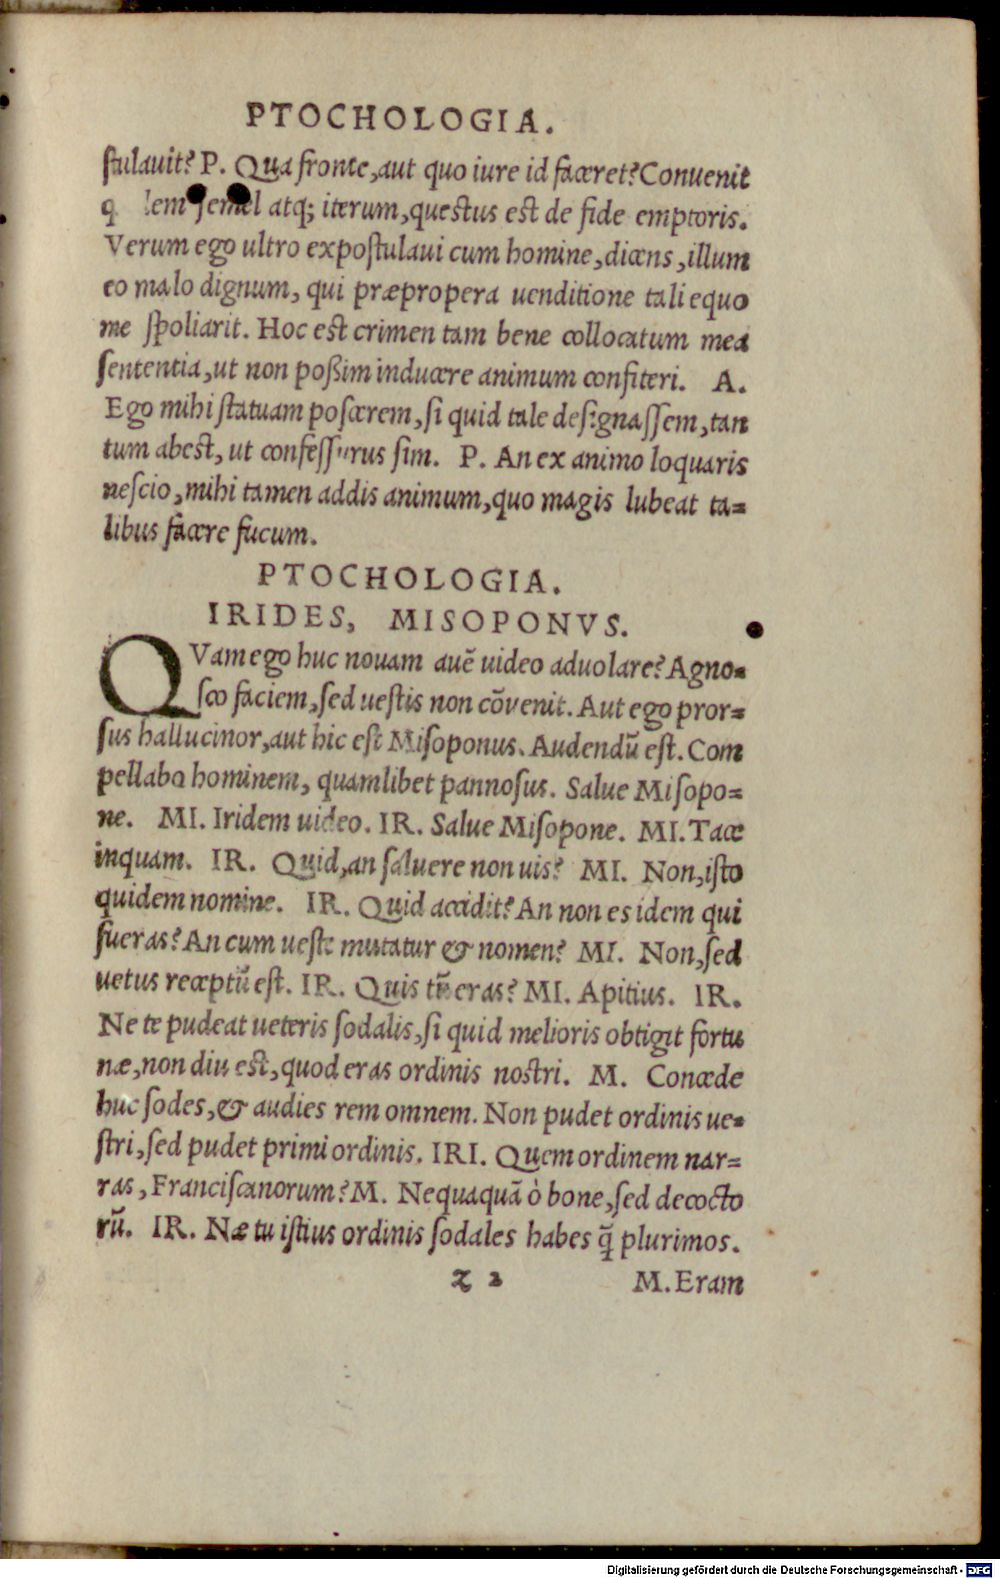 PTOCHOLOGIA.
stulauit? P. Qua fronte, aut quo iure id faceret? Conuenit
semel atq; iterum, questus est de fide emptoris.
Verum ego ultro expostulaui cum homine, dicens, illum
eo malo dignum, qui præpropera uenditione tali equo
me spoliarit. Hoc est crimen tam bene collocatum mea
sententia, ut non poßim inducere animum confiteri. A.
Ego mihi statuam poscerem, si quid tale designassem, tan
tum abest, ut confessurus sim. P. An ex animo loquaris
nescio, mihi tamen addis animum, quo magis lubeat ta=
libus facere fucum.
PTOCHOLOGIA.
IRIDES, MISOPONVS.
QVam ego huc nouam auẽ uideo aduolare? Agno=
sco faciem, sed uestis non cõvenit. Aut ego pror=
sus hallucinor, aut hic est Misoponus. Audendũ est. Com
pellabo hominem, quamlibet pannosus. Salue Misopo=
ne. MI. Iridem uideo. IR. Salue Misopone. MI. Tace
inquam. IR. Quid, an saluere non uis? MI. Non, isto
quidem nomine. IR. Quid accidit? An non es idem qui
fueras? An cum ueste mutatur & nomen? MI. Non, sed
uetus receptũ est. IR. Quis tũ eras? MI. Apitius. IR.
Ne te pudeat ueteris sodalis, si quid melioris obtigit fortu
næ, non diu est, quod eras ordinis nostri. M. Concede
huc sodes, & audies rem omnem. Non pudet ordinis ue=
stri, sed pudet primi ordinis. IRI. Quem ordinem nar=
ras, Franciscanorum? M. Nequaquã ò bone, sed decocto
rũ. IR. Næ tu istius ordinis sodales habes q̃ plurimos.
z 2 M. Eram
Digitalisierung gefördert durch die Deutsche Forschungsgemeinschaft - DFG